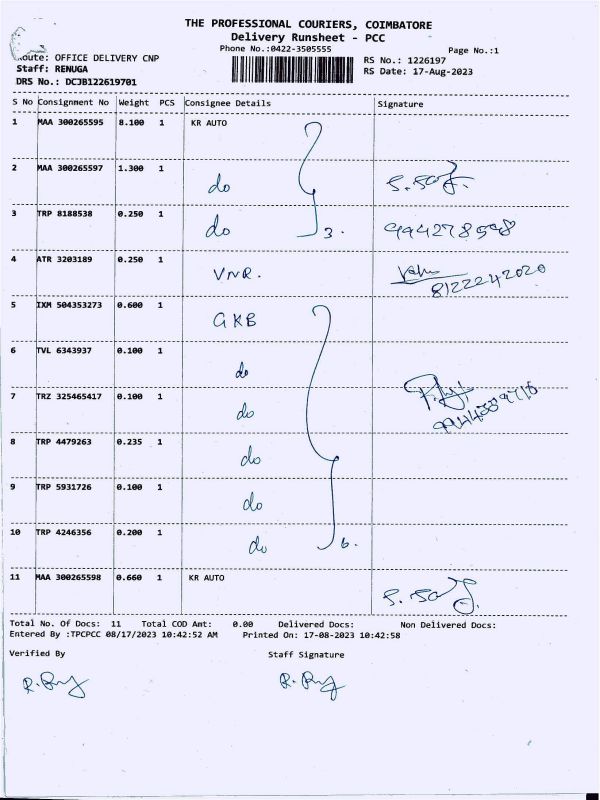 THE PROFESSIONAL COURIERS, COIMBATORE
Delivery Runsheet - PCC
Phone No.:0422-3505555 Page No.:1
Route: OFFICE DELIVERY CNP RS No.: 1226197
Staff: RENUGA RS Date: 17-Aug-2023
DRS No.: DCJB122619701
S No Consignment No Weight PCS Consignee Details Signature
1 MAA 300265595 8.100 1 KR AUTO
2 MAA 300265597 1.300 1 do
3 TRP 8188538 0.250 1 do 3.
4 ATR 3203189 0.250 1 VNR. 8122242020
5 IXM 504353273 0.600 1 GKB
6 TVL 6343937 0.100 1 do
7 TRZ 325465417 0.100 1 do
8 TRP 4479263 0.235 1 do
9 TRP 5931726 0.100 1 do
10 TRP 4246356 0.200 1 do 6.
11 MAA 300265598 0.660 1 KR AUTO
Total No. Of Docs: 11 Total COD Amt: 0.00 Delivered Docs: Non Delivered Docs:
Entered By :TPCPCC 08/17/2023 10:42:52 AM Printed On: 17-08-2023 10:42:58
Verified By Staff Signature